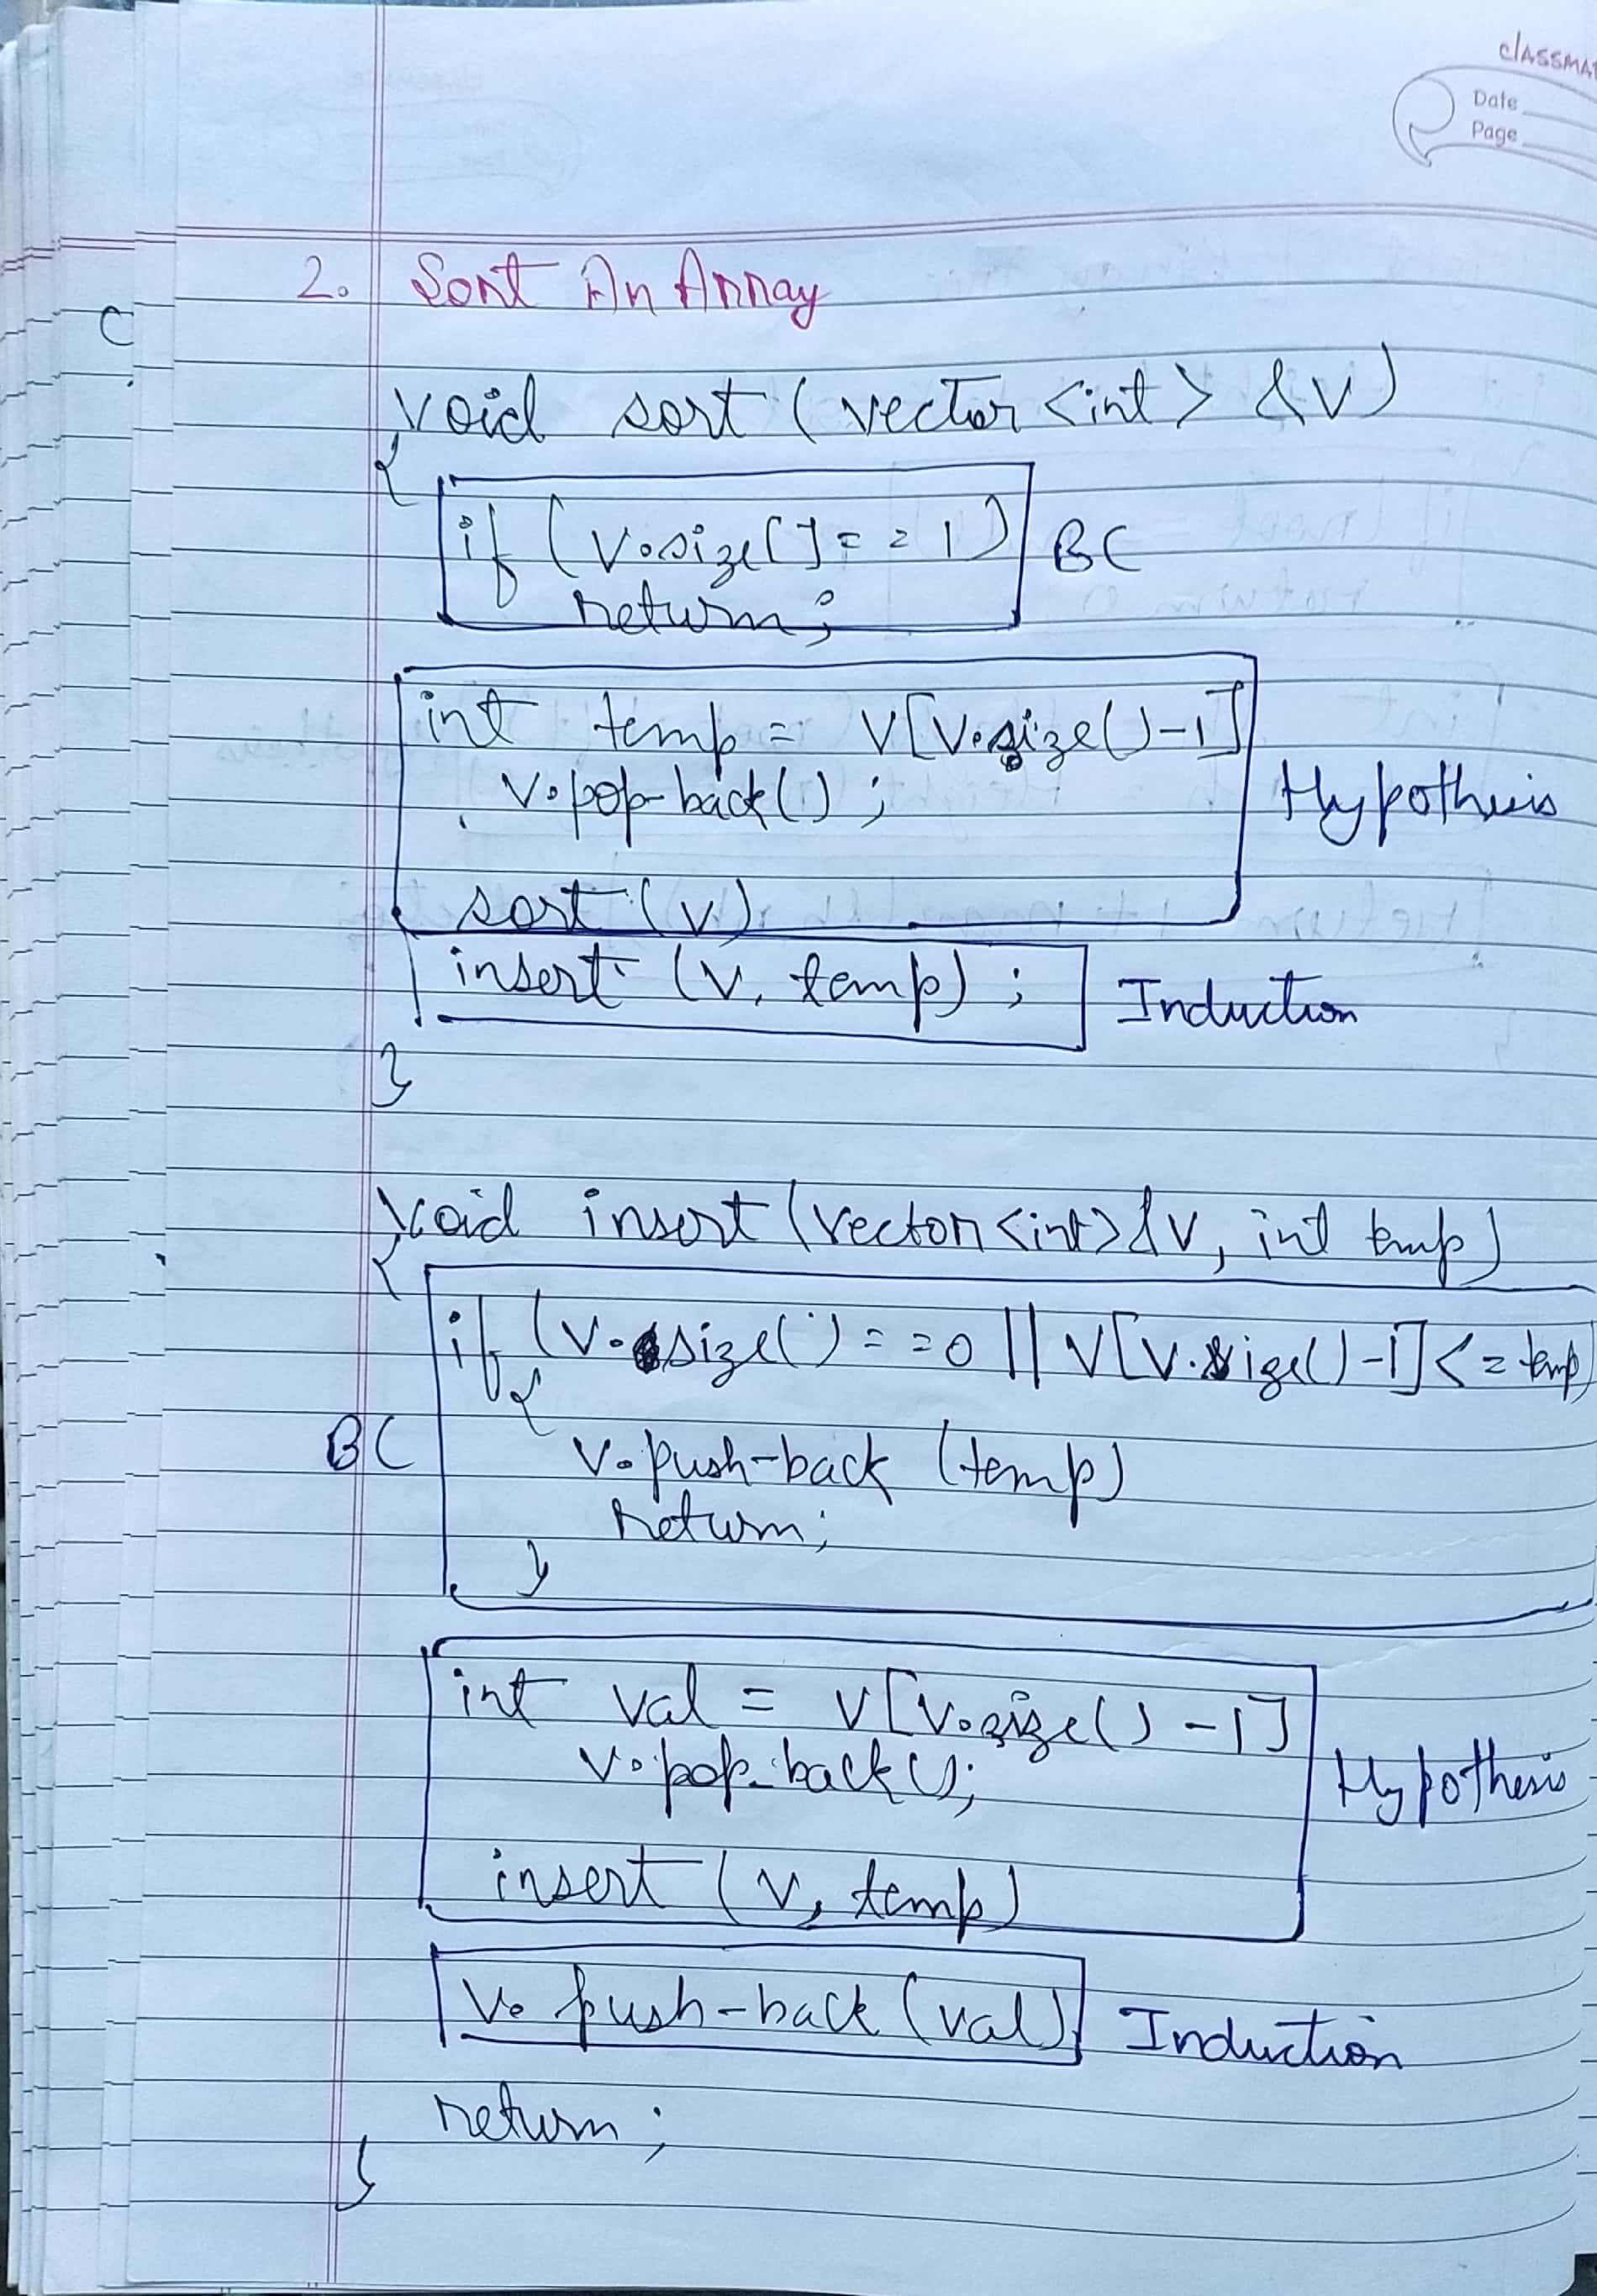 classmate
Date
Page
2. Sort An Array
void sort (vector <int> &v)
{
if (v.size() == 1) BC
return;
int temp = v[v.size()-1]
v.pop-back();
Hypothesis
sort (v)
insert (v, temp); Induction
}
void insert (vector<int>&v, int temp)
{
if (v.size() == 0 || v[v.size()-1] <= temp)
{
BC v.push-back (temp)
return;
}
int val = v[v.size() -1]
v.pop-back();
Hypothesis
insert (v, temp)
v.push-back (val) Induction
return;
}